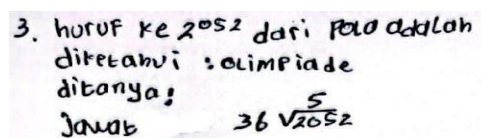 3. huruf ke 2052 dari Pola adalah
diketahui : olimpiade
ditanya :
Jawab 5
36 √2052